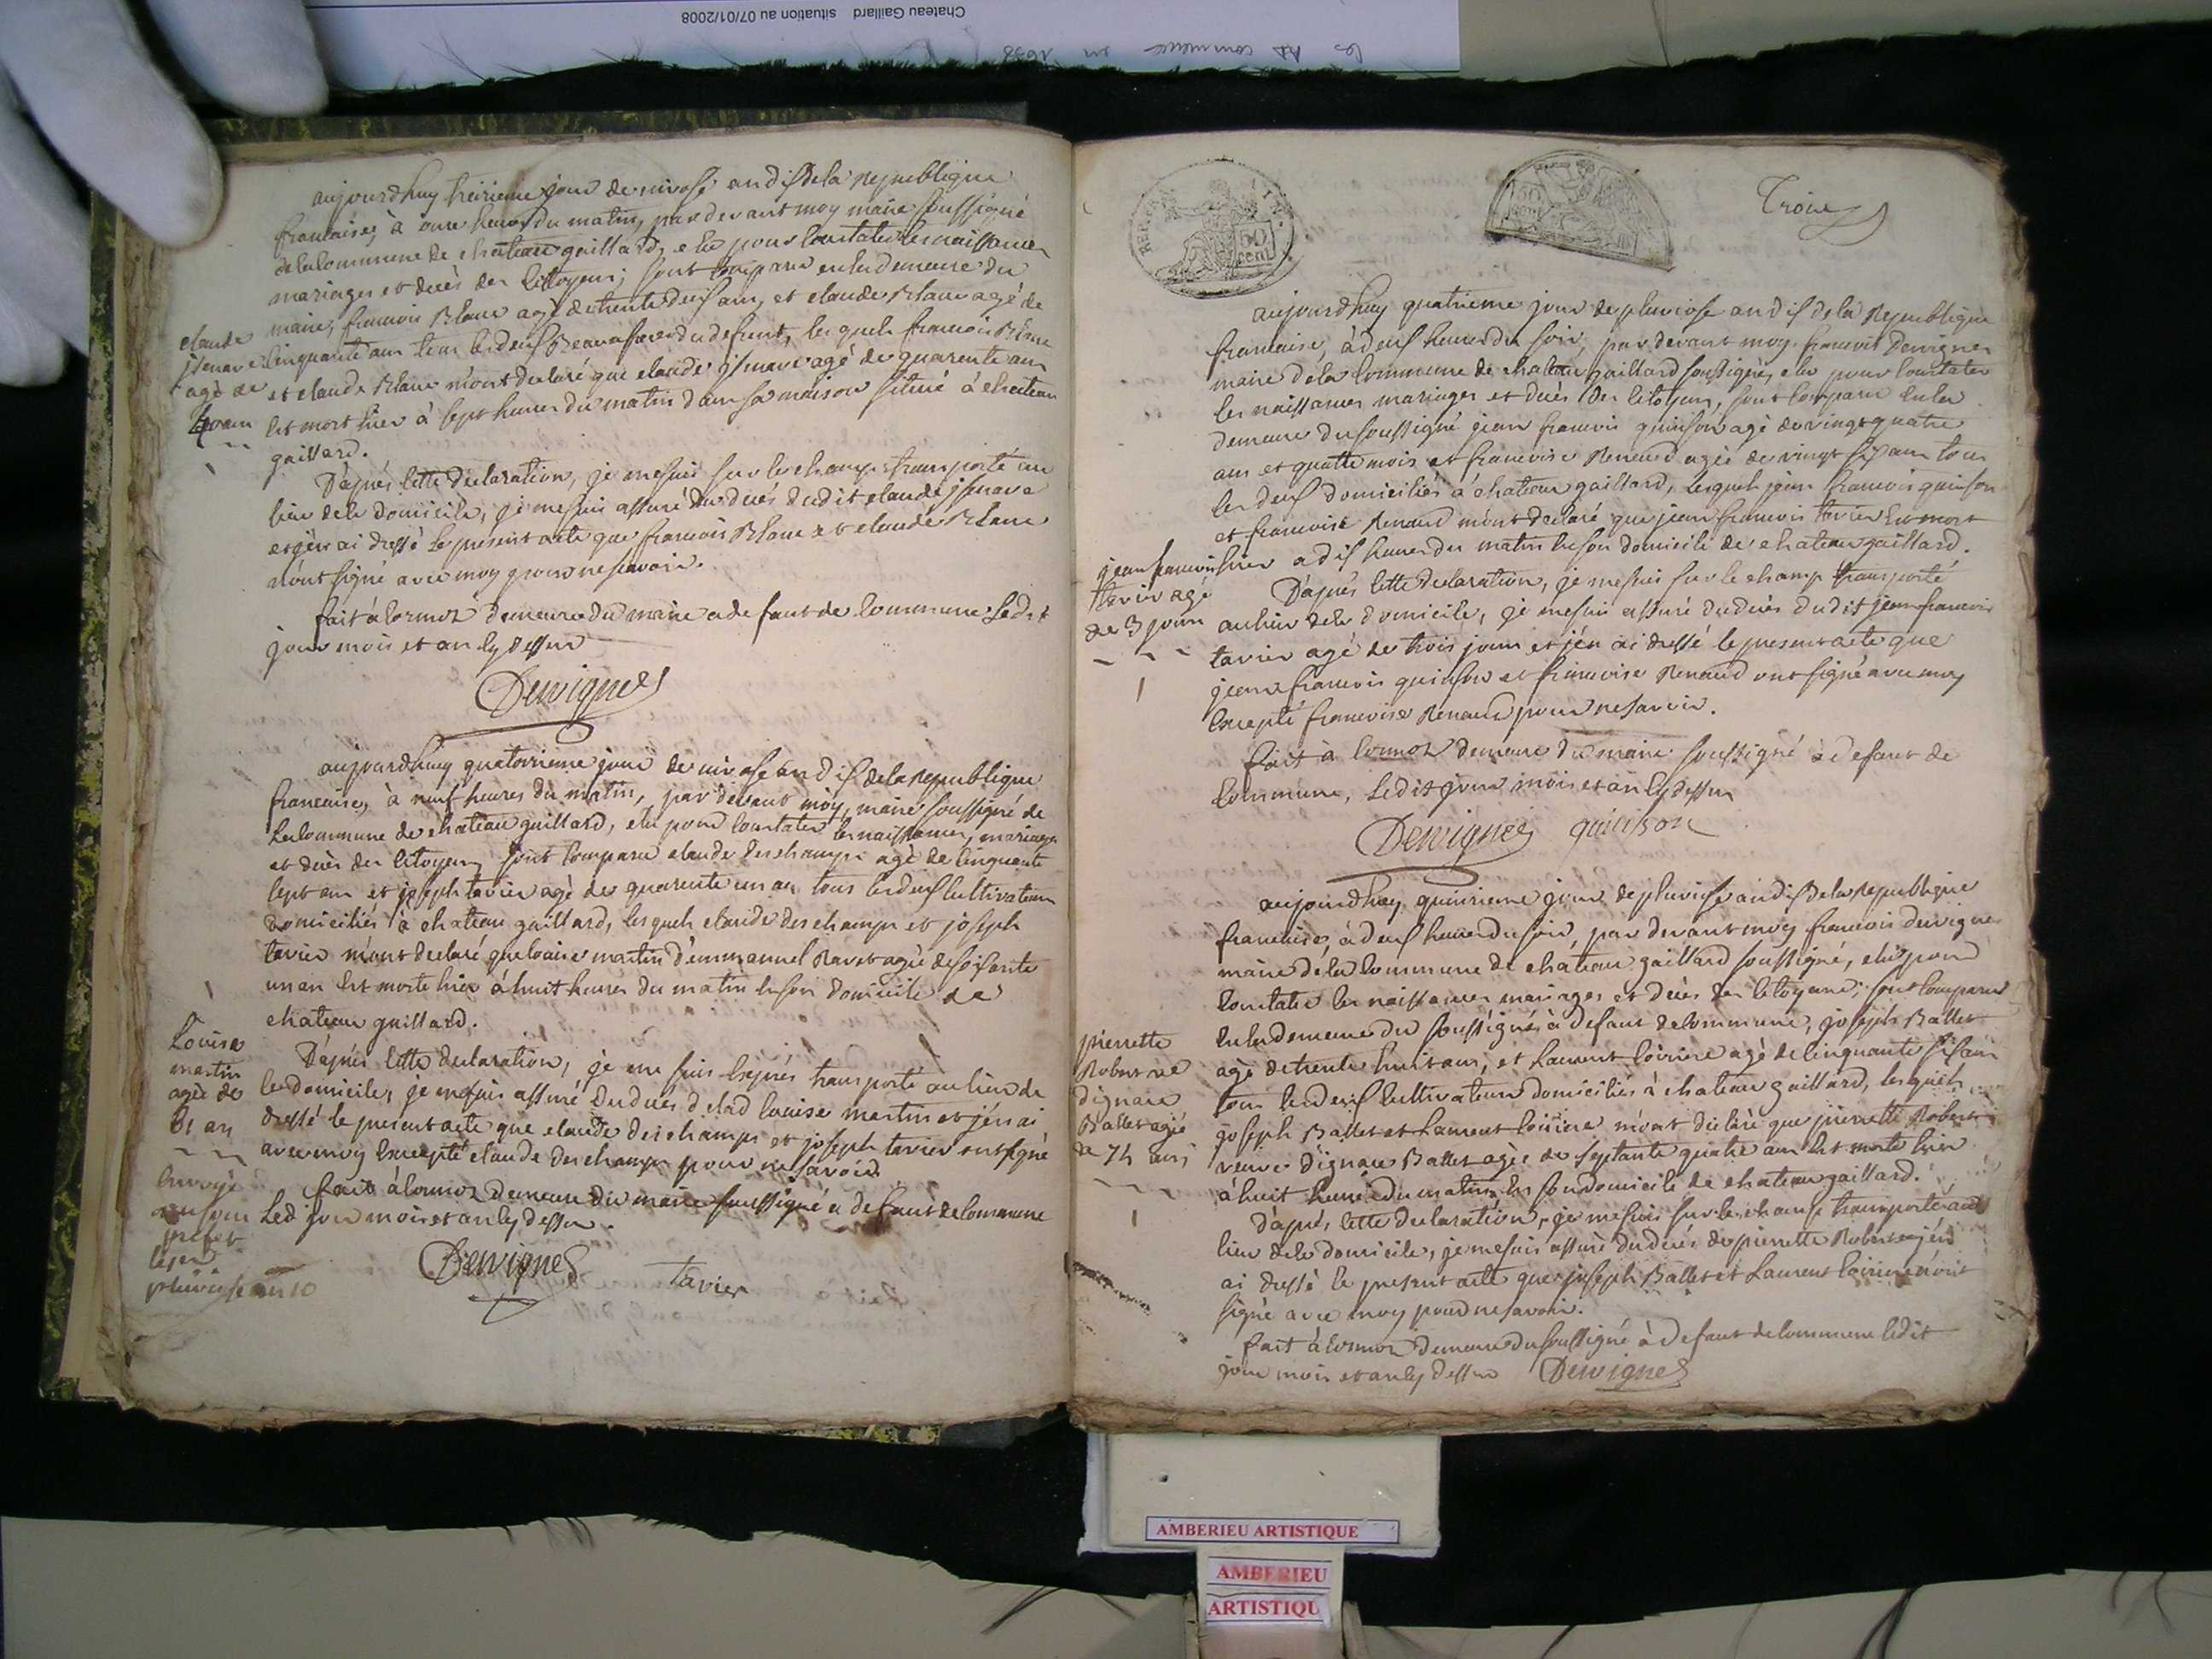 Chateau Gaillard situation au 07/01/2008
les commence en 16
aujourdhuy treizieme jour de nivose an dix de la republique
francaise, à onze heures du matin, par devant moy maire soussigné
de la commune de chateau gaillard, elu pour constater les naissances
mariages et decès des citoyens; sont comparu en la demeure du
maire, francois Blanc agé de trente deux ans, et claude Blanc agé de
cinquante ans tous les deux Beaux frere du defunt, les quels francois Blanc
et claude Blanc m'ont declaré que claude jsnave agé de quarente ans
est mort hier à sept heures du matin dans sa maison située à chateau
gaillard.
claude
jsnave
agé de
40 ans
D'après cette declaration, je me suis sur le champ transporté au
lieu de le domicile, je me suis assuré du decès dudit claude jsnave
et j'en ai dressé le present acte que francois Blanc et claude Blanc
n'ont signé avec moy pour ne savoir.
fait à cormoz demeure du maire a defaut de commune Ledit
jour mois et an cy dessus
Dewignes
aujourdhuy quatorzieme jour de nivose an dix de la republique
francaise, à neuf heures du matin, par devant moy, maire soussigné de
la commune de chateau guillard, elu pour constater les naissances, mariages
et decès des citoyens sont comparu claude deschamps agé de cinquante
sept ans et joseph tavier agé de quarente un an tous les deux cultivateurs
domiciliés à chateau gaillard, les quels claude deschamps et joseph
tavier m'ont declaré que louise martin d'emmannuel Ravet agée de soisante
un an est morte hier à huit heures du matin en son domicile de
chateau guillard.
Louise
martin
agée de
61 an
D'après cette declaration, je me suis exprés transporté au lieu de
le domicile, je me suis assuré du decès de lad louise martin et j'en ai
dressé le present acte que claude deschamps et joseph tavier ont signé
avec moy excepté claude deschamps pour ne savoir
fait à cormoz demeure du maire soussigné a defaut de commune
Led jour mois et an cy dessus.
Envoyé
au sous
prefet
le
pluviose an 10
Dewignes tavier
Troize
REP. FRA.
50 cent
aujourdhuy quatrieme jour de pluviose an dix de la Republique
francaise, à deux heures du soir, par devant moy francois Dewignes
maire de la commune de chateau gaillard soussigné, elu pour constater
les naissances mariages et decès des citoyens, sont comparu en la
demeure du soussigné jean francois quinson agé de vingt quatre
ans et quatre mois et francoise Renaud agée de vingt six ans tous
les deux domiciliés à chateau gaillard, lesquels jean francois quinson
et francoise Renaud m'ont declaré que jean francois tavier est mort
hier a dix heures du matin en son domicile de chateau gaillard.
jean francois
tavier agé
de 3 jours
D'après cette declaration, je me suis sur le champ transporté
au lieu de le domicile, je me suis assuré du decès dudit jean francois
tavier agé de trois jours et j'en ai dressé le present acte que
jean francois quinson et francoise Renaud ont signé avec moy
excepté francoise Renaud pour ne savoir.
fait à cormoz demeure du maire soussigné à defaut de
commune, Ledit jour mois et an cy dessus
Dewignes quinson
aujourdhuy quinzieme jour de pluviose an dix de la Republique
francaise, à deux heures du soir, par devant moy francois dewignes
maire de la commune de chateau gaillard soussigné, elu pour
constater les naissances mariages et decès des citoyens; sont comparu
en la demeure du soussigné, à defaut de commune, joseph Ballet
agé de trente huit ans, et Laurent loiriere agé de cinquante six ans
tous les deux cultivateurs domiciliés à chateau gaillard, lesquels
joseph Ballet et Laurent loiriere m'ont declaré que pierrette Robert
veuve d'ignace Ballet agée de septante quatre ans est morte hier
à huit heures du matin en son domicile de chateau gaillard.
pierrette
Robert ve
dignace
Ballet agée
de 74 ans
d'après cette declaration, je me suis sur le champ transporté au
lieu de le domicile, je me suis assuré du decés de pierrette Robert et j'en
ai dressé le present acte que joseph Ballet et Laurent loiriere n'ont
signé avec moy pour ne savoir.
fait à cormoz demeure du soussigné à defaut de commune ledit
jour mois et an cy dessus Dewignes
AMBERIEU ARTISTIQUE
AMBERIEU
ARTISTIQU